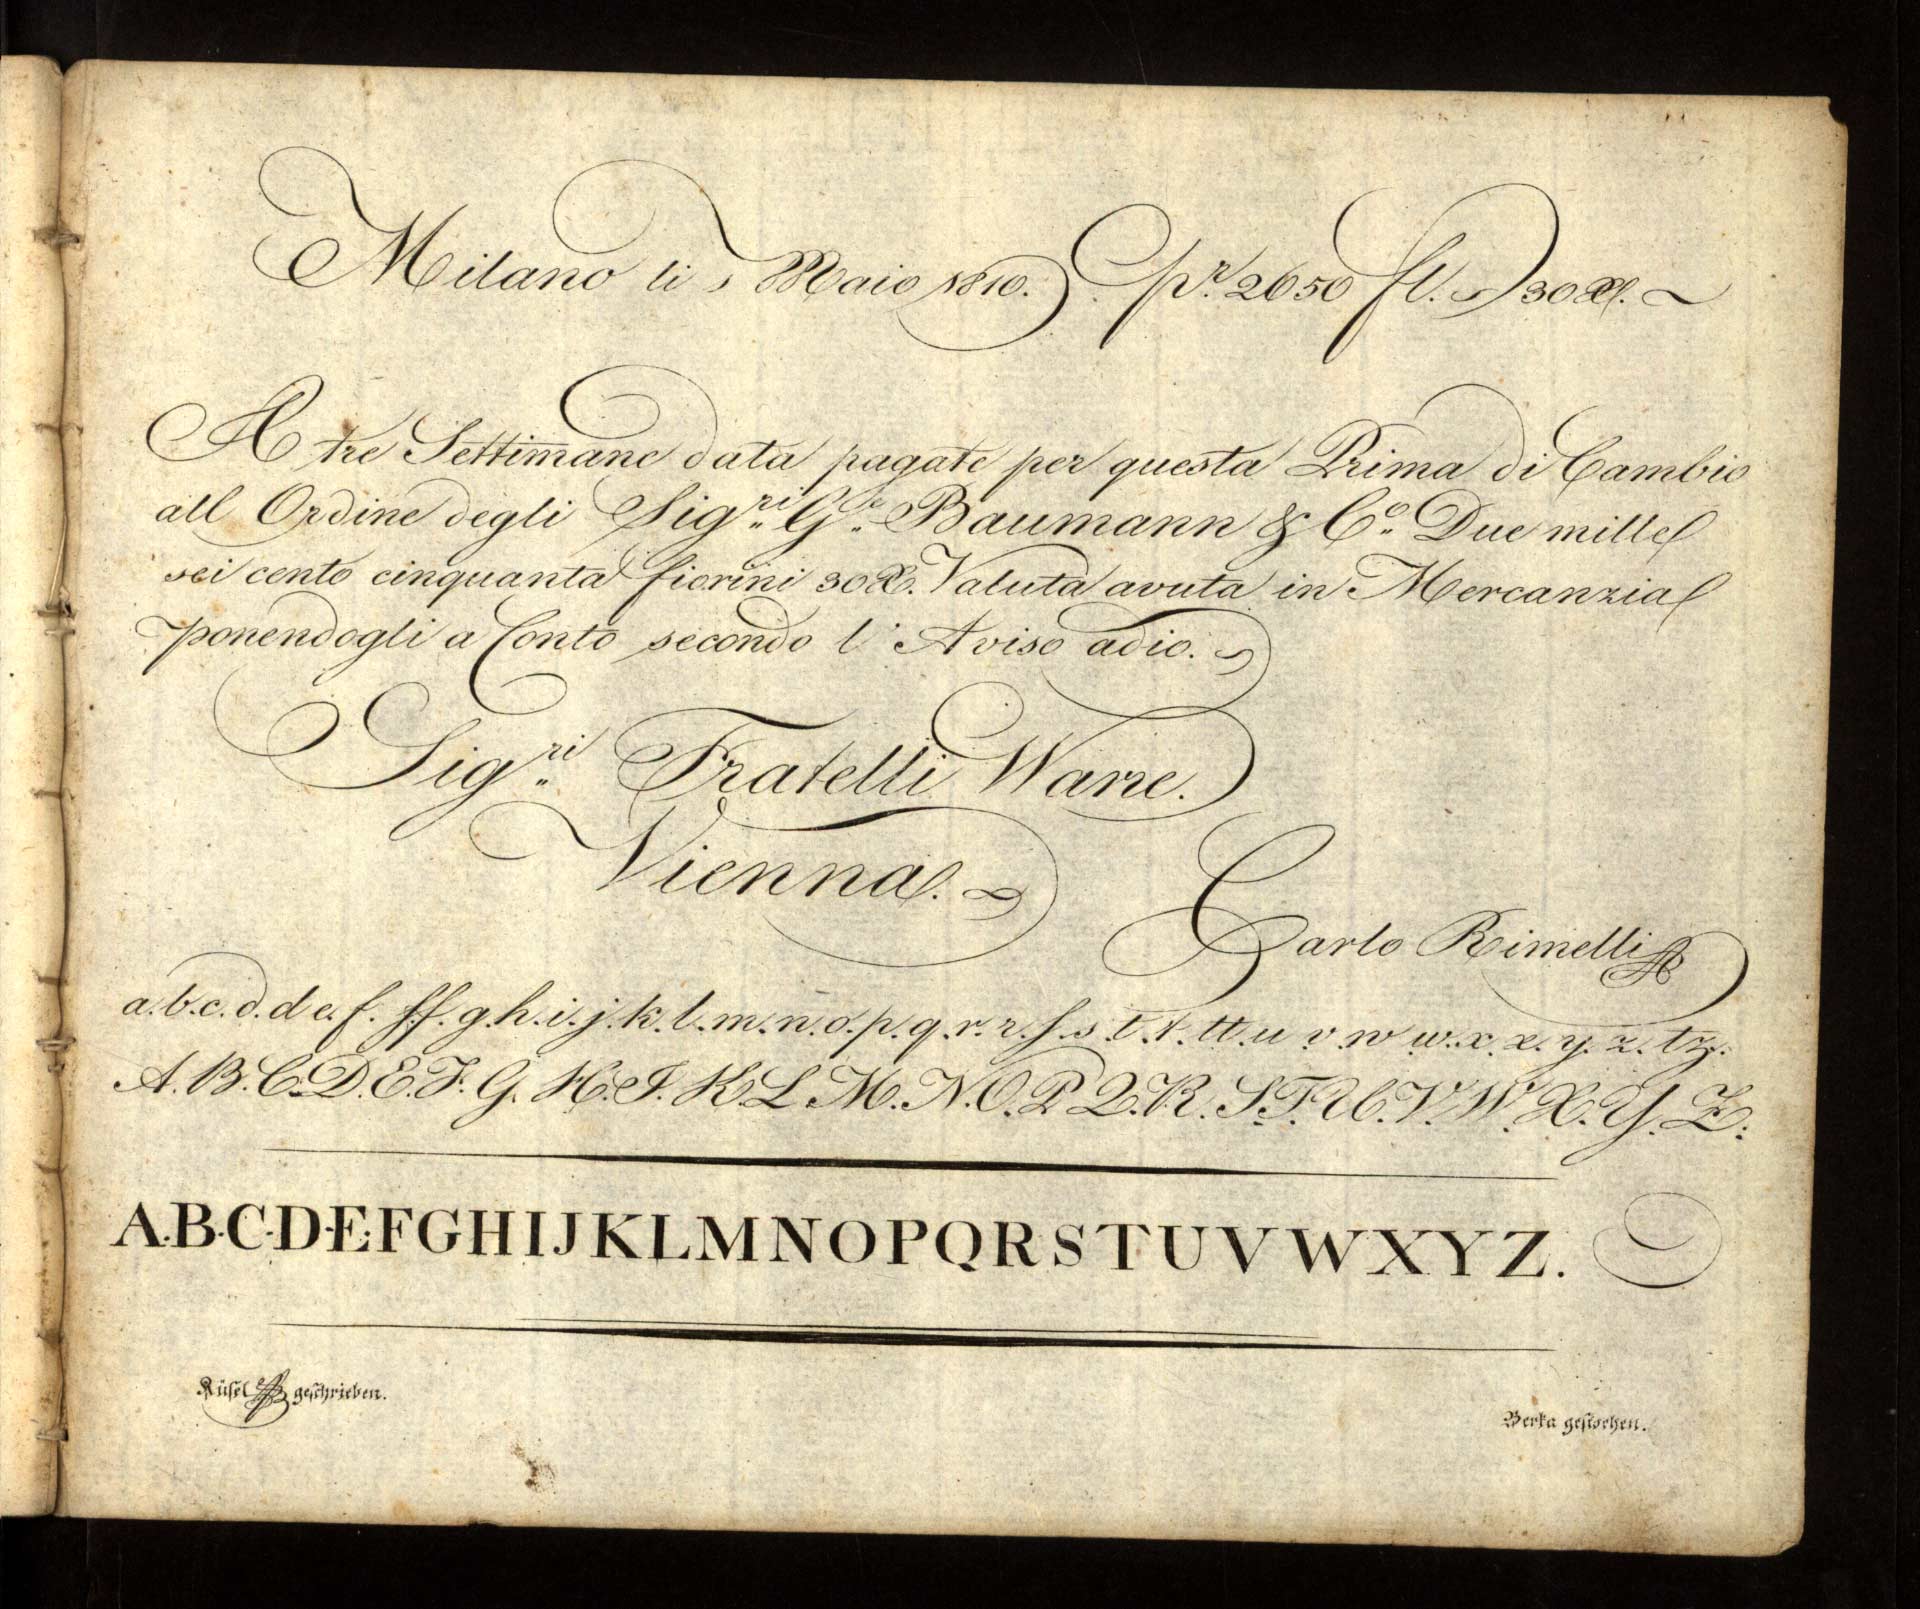 Milano li 1 Maio 1810. pr. 2650 fl. 30 X.
A tre Settimane data pagate per questa Prima di Cambio
all Ordine degli Sigri Ge. Baumann & Co. Due mille
sei cento cinquanta fiorini 30 X. Valuta avuta in Mercanzia
ponendogli a Conto secondo l'Aviso adio.
Sigri Fratelli Warre.
Vienna.
Carlo Rimelli
a.b.c.d.d e.f. f.f. g.h.i.j.k.l.m.n.o.p.q.r.r.ſ.s.t.t.tt.u v.w w.x.x.y.z.tz.
A.B.C.D.E.F.G.H.I.K.L.M.N.O.P.Q.R.S.T.U.V.W.X.Y.Z.
A.B.C.D.E.F G H I J K L M N O P Q R S T U V W X Y Z.
Rüſel geſchrieben.
Berka geſtochen.